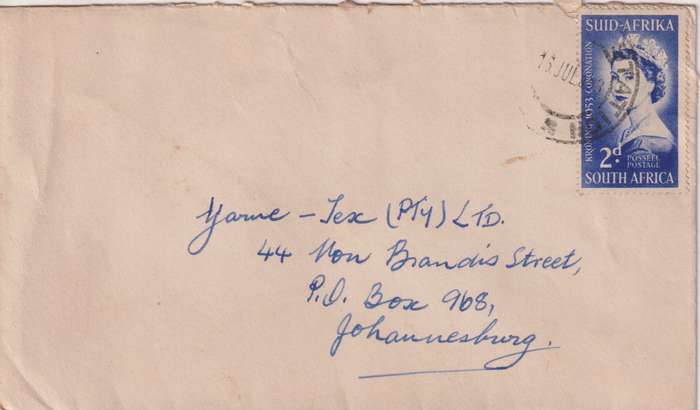 SUID-AFRIKA
KRONING 1953 CORONATION
2d.
POSSEËL
POSTAGE
SOUTH AFRICA
JUL
Yarne - Tex (PTy) LTD.
44 Von Brandis Street,
P.O. Box 968,
Johannesburg.